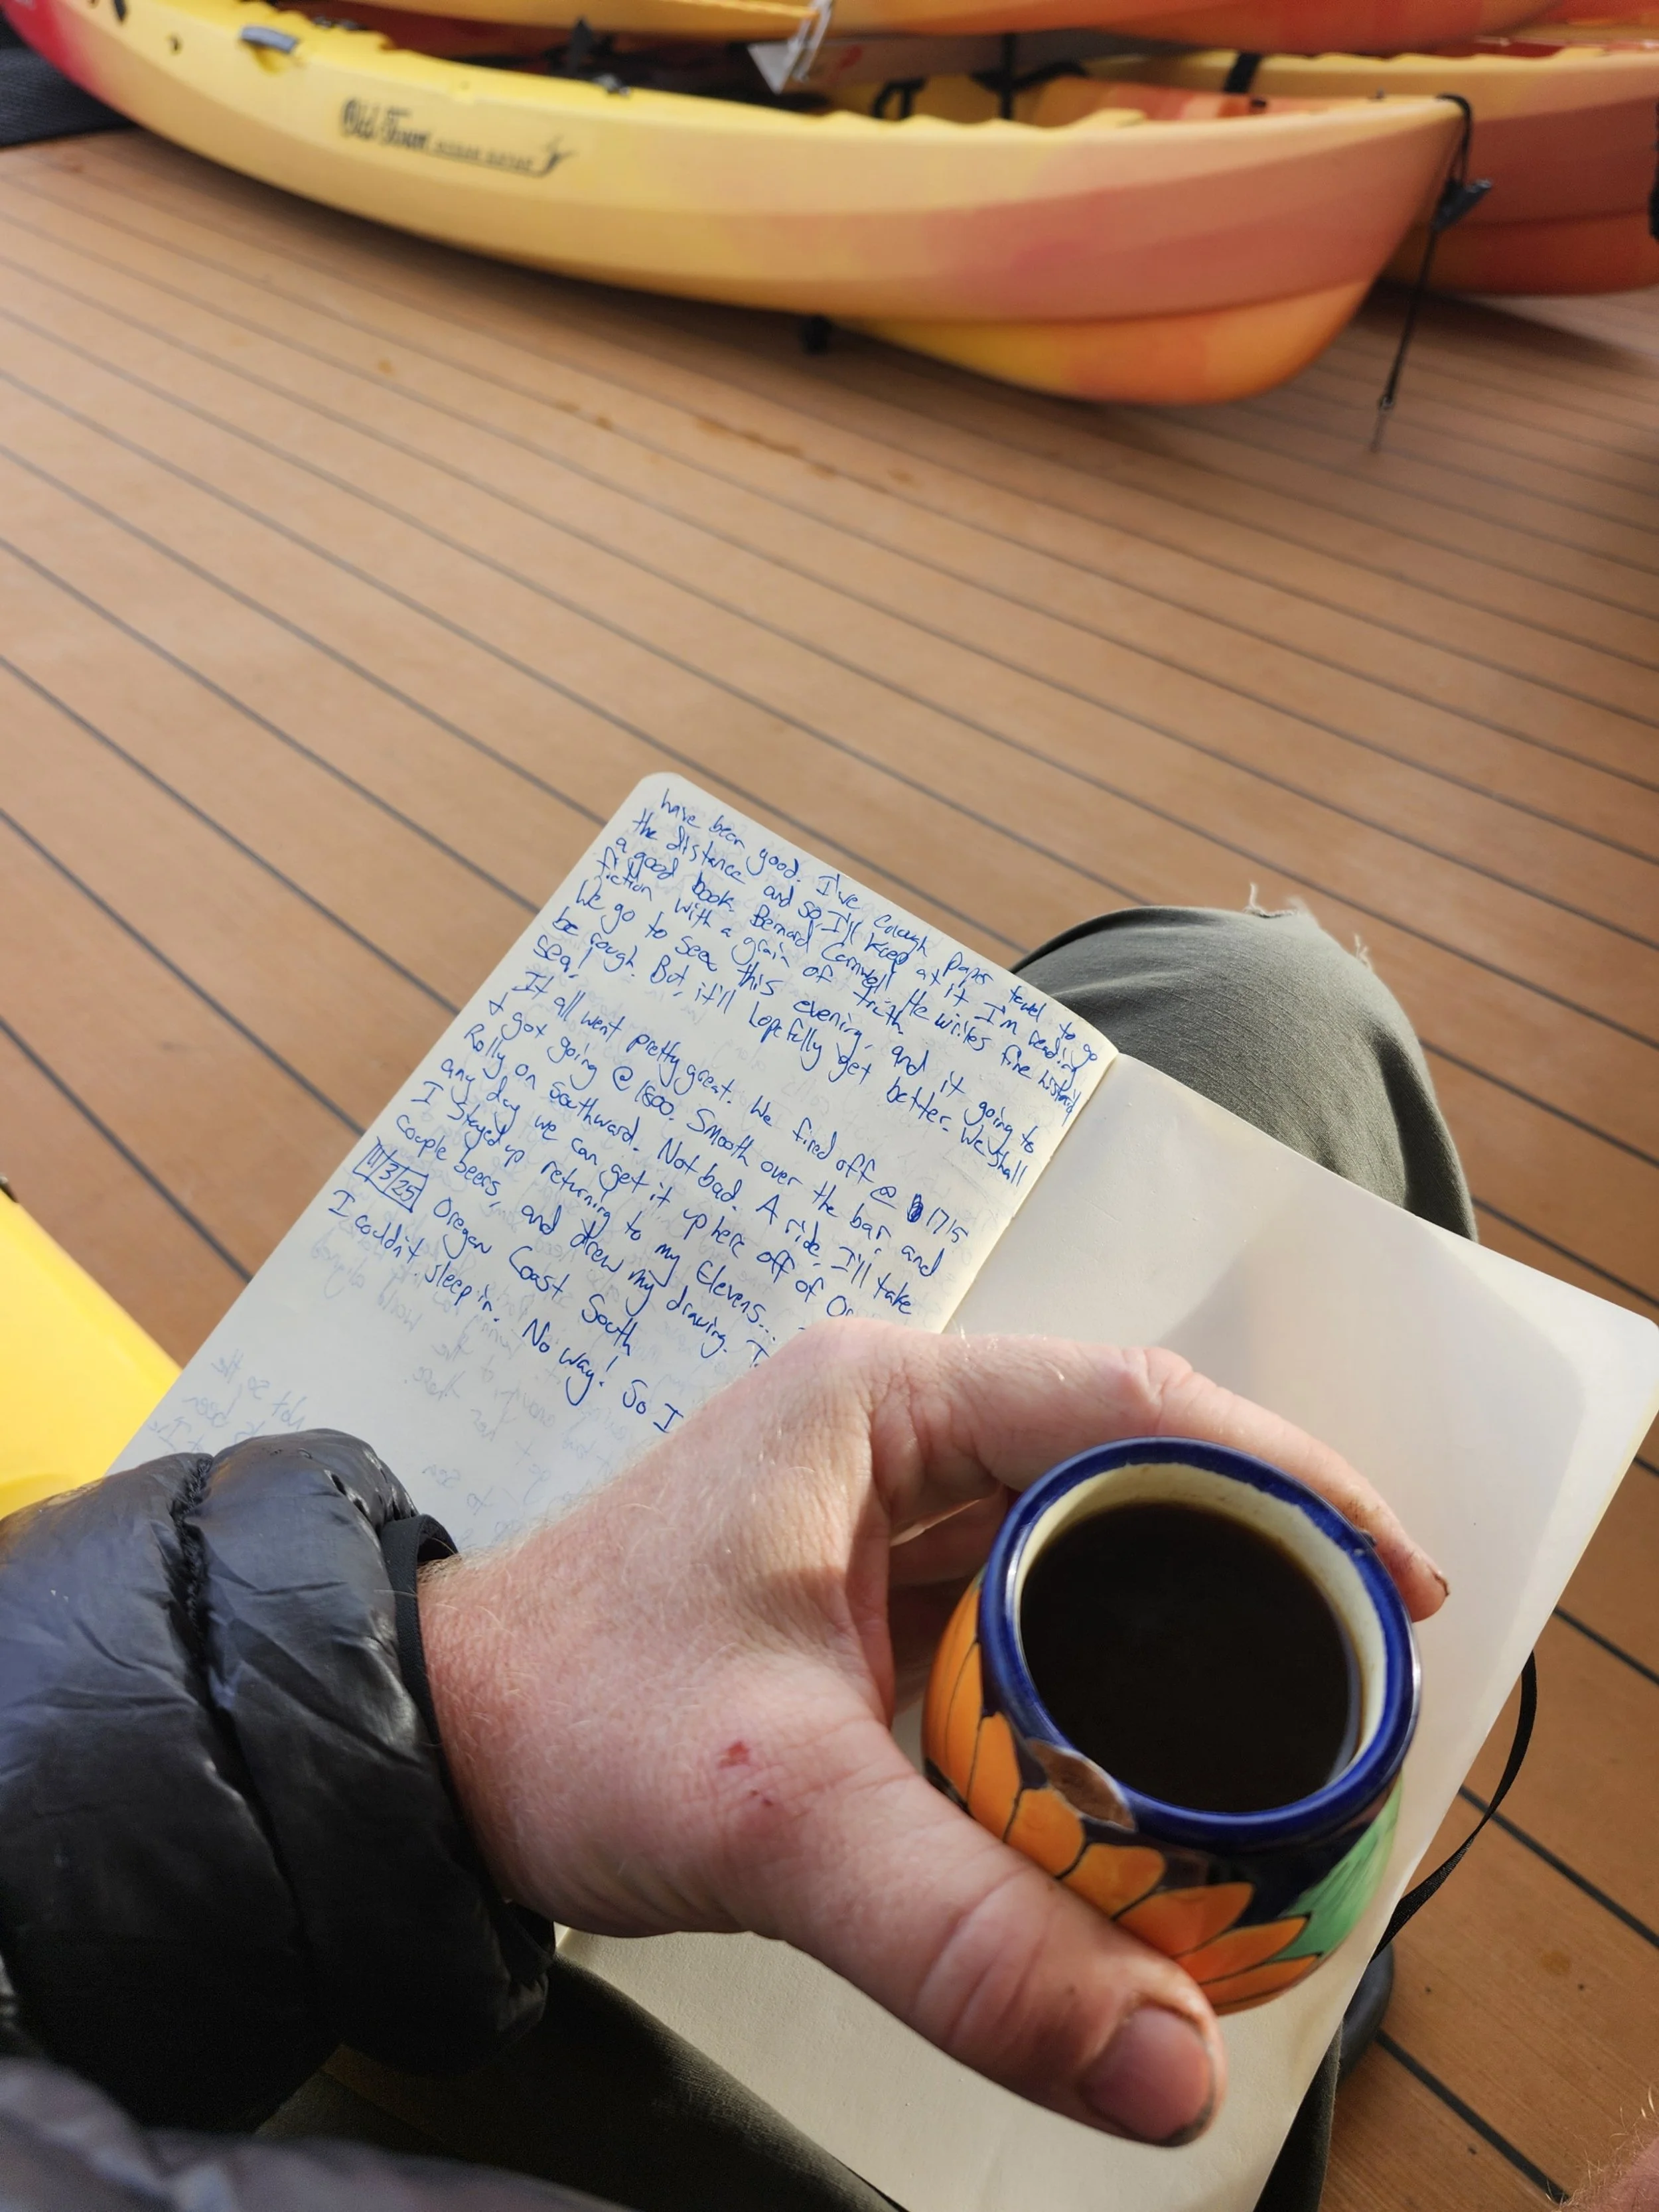 Old Town
have been good. I've enough paper towel to go
the distance and so I'll keep at it. I'm reading
a good book. Bernard Cornwell. He writes fine historical
fiction with a grain of truth.
We go to sea this evening, and it going to
be rough. But, it'll hopefully get better. We shall
sea!
It all went pretty great. We fired off @ 1715
+ got going @ 1800. Smooth over the bar and
Rolly on southward. Not bad. A ride I'll take
any day we can get it up here off of Or
I stayed up returning to my Elevens...
couple beers, and drew my drawing. I
11/3/25 Oregon Coast South
I couldn't sleep in. No way! So I